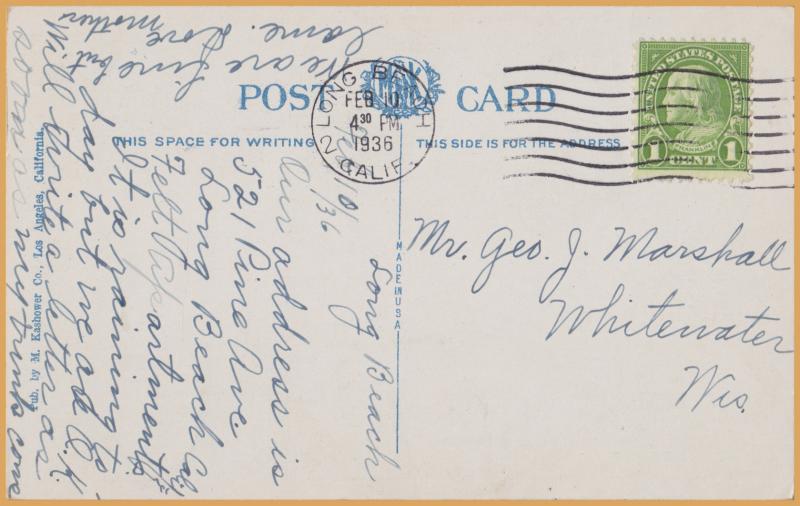 POST CARD
THIS SPACE FOR WRITING
THIS SIDE IS FOR THE ADDRESS
LONG BEACH
2
CALIF.
FEB 10
4 30 PM
1936
UNITED STATES POSTAGE
FRANKLIN
1 CENT 1
MADE IN USA
Pub. by M. Kashower Co., Los Angeles, California.
Mr. Geo. J. Marshall
Whitewater
Wis.
Long Beach
2/10/36
Our address is
521 Pine Ave.
Long Beach Cal
Felt Apartments
It is raining to
day but we ad O.K.
Will write a letter as
soon as my trunk come
We are fine but
lame. Love
Mother